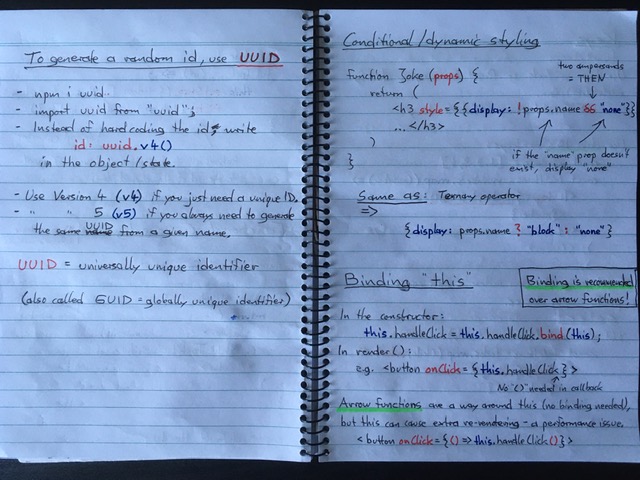 To generate a random id, use UUID
- npm i uuid
- import uuid from "uuid";
- Instead of hardcoding the id, write
id: uuid.v4()
in the object/state.
- Use Version 4 (v4) if you just need a unique ID.
- " " 5 (v5) if you always need to generate
the same UUID from a given name.
UUID = universally unique identifier
(also called GUID = globally unique identifier)
Conditional/dynamic styling
function Joke (props) {
return (
<h3 style={{display: !props.name && "none"}}
...</h3>
)
}
two ampersands
= THEN
if the "name" prop doesn't
exist, display "none"
Same as: Ternary operator
=>
{display: props.name ? "block" : "none"}
Binding "this"
Binding is recommended
over arrow functions!
In the constructor:
this.handleClick = this.handleClick.bind(this);
In render():
e.g. <button onClick={this.handleClick}>
No "()" needed in callback
Arrow functions are a way around this (no binding needed),
but this can cause extra re-rendering - a performance issue.
<button onClick={() => this.handleClick()}>